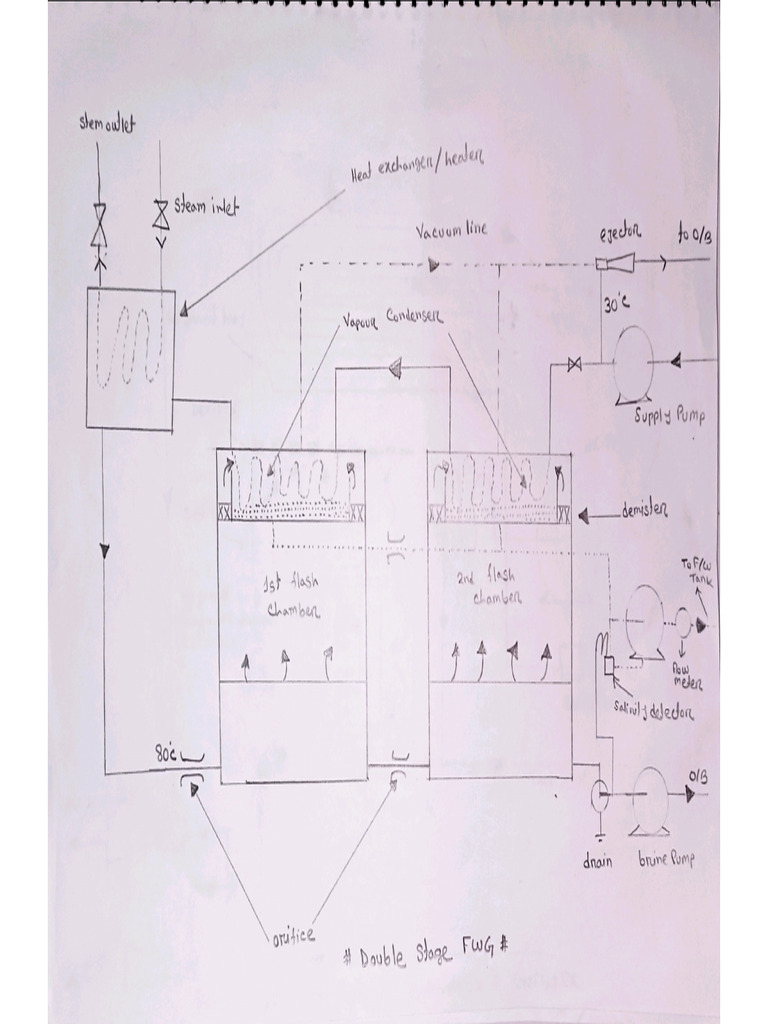 stem outlet
Steam inlet
Heat exchanger/heater
Vacuum line
ejector
to O/B
30°c
Vapour Condenser
Supply Pump
demister
1st flash
chamber
2nd flash
chamber
To F/W
Tank
flow
meter
Salinity detector
80°c
O/B
drain
brine Pump
orifice
# Double Stage FWG #